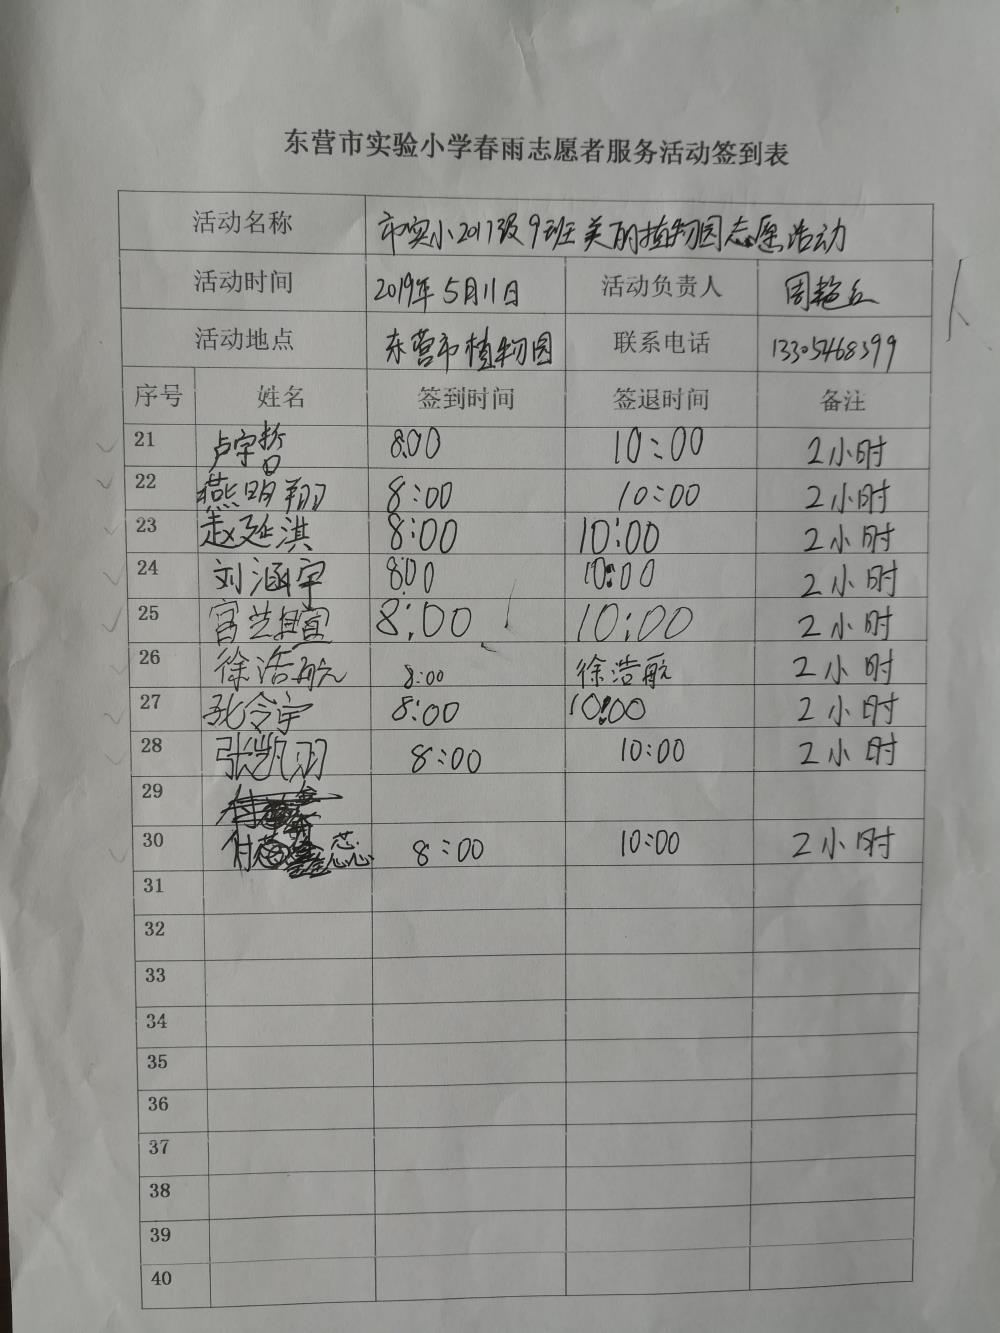 东营市实验小学春雨志愿者服务活动签到表
活动名称 市实小2017级9班美丽植物园志愿活动
活动时间 2019年5月11日 活动负责人 周艳
活动地点 东营市植物园 联系电话 13305468399
序号 姓名 签到时间 签退时间 备注
21 卢宇哲 8:00 10:00 2小时
22 燕明翔 8:00 10:00 2小时
23 赵延淇 8:00 10:00 2小时
24 刘涵宇 8:00 10:00 2小时
25 8:00 10:00 2小时
26 徐浩航 8:00 徐浩航 2小时
27 孔令宇 8:00 10:00 2小时
28 张凯羽 8:00 10:00 2小时
29
30 付 蕊 8:00 10:00 2小时
31
32
33
34
35
36
37
38
39
40